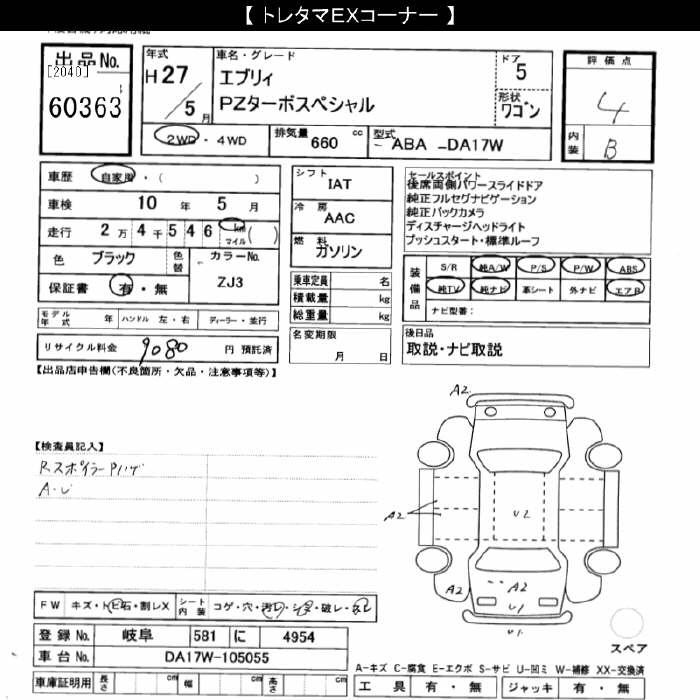 【 トレタマEXコーナー 】
出品No.
[2040]
60363
年式
H 27 / 5 月
車名・グレード
エブリィ
PZターボスペシャル
ドア
5
形状
ワゴン
2WD ・ 4WD
排気量 660 cc
型式 ABA -DA17W
評価点
4
内装
B
車歴 自家用・( )
車検 10 年 5 月
走行 2万 4千 5 4 6 km マイル ( )
色 ブラック
色替
カラーNo.
ZJ3
保証書 有・無
シフト
IAT
冷房
AAC
燃料
ガソリン
乗車定員 名
積載量 kg
総重量 kg
セールスポイント
後席両側パワースライドドア
純正フルセグナビゲーション
純正バックカメラ
ディスチャージヘッドライト
プッシュスタート・標準ルーフ
装備品
S/R 純A/W P/S P/W ABS
純TV 純ナビ 革シート 外ナビ エアB
ナビ型番:
モデル年式 年 ハンドル 左・右 ディーラー・並行
リサイクル料金 9080 円 預託済
名変期限
月 日
後日品
取説・ナビ取説
【出品店申告欄(不良箇所・欠品・注意事項等)】
A2
【検査員記入】
Rスポイラー Pハゲ
A・U
A2
U2
A2
A2
U1
U1
スペア
FW キズ・トビ石・割レX
シート内装 コゲ・穴・汚レ・シミ・破レ・スレ
登録No. 岐阜 581 に 4954
車台No. DA17W-105055
A-キズ C-腐食 E-エクボ S-サビ U-凹ミ W-補修 XX-交換済
車庫証明用 長さ cm 幅 cm 高さ cm
工具 有・無 ジャッキ 有・無